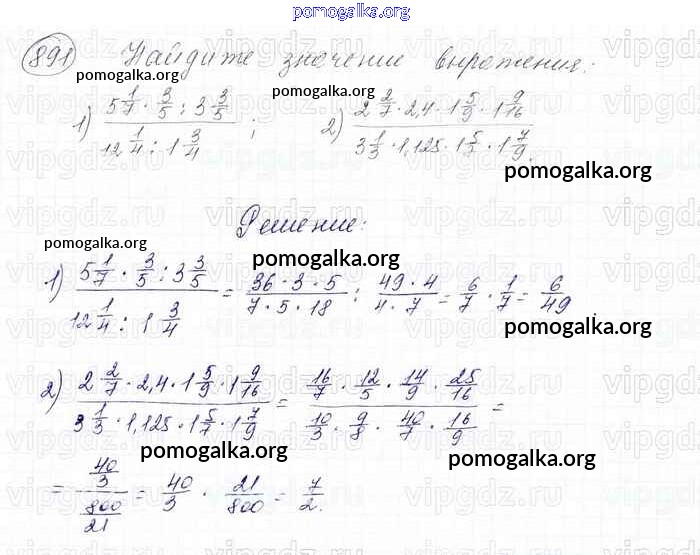 pomogalka.org
891 Найдите значение выражения:
pomogalka.org pomogalka.org
1) (5 1/7 · 3/5 : 3 3/5) / (12 1/4 : 1 3/4) ; 2) (2 2/7 · 2,4 · 1 5/9 · 1 9/16) / (3 1/3 · 1,125 · 1 5/7 · 1 7/9).
pomogalka.org
Решение:
pomogalka.org pomogalka.org
1) (5 1/7 · 3/5 : 3 3/5) / (12 1/4 : 1 3/4) = (36 · 3 · 5) / (7 · 5 · 18) : (49 · 4) / (4 · 7) = 6/7 · 1/7 = 6/49
pomogalka.org
2) (2 2/7 · 2,4 · 1 5/9 · 1 9/16) / (3 1/3 · 1,125 · 1 5/7 · 1 7/9) = (16/7 · 12/5 · 14/9 · 25/16) / (10/3 · 9/8 · 40/7 · 16/9) =
pomogalka.org pomogalka.org
= (40/3) / (800/21) = 40/3 · 21/800 = 7/2.